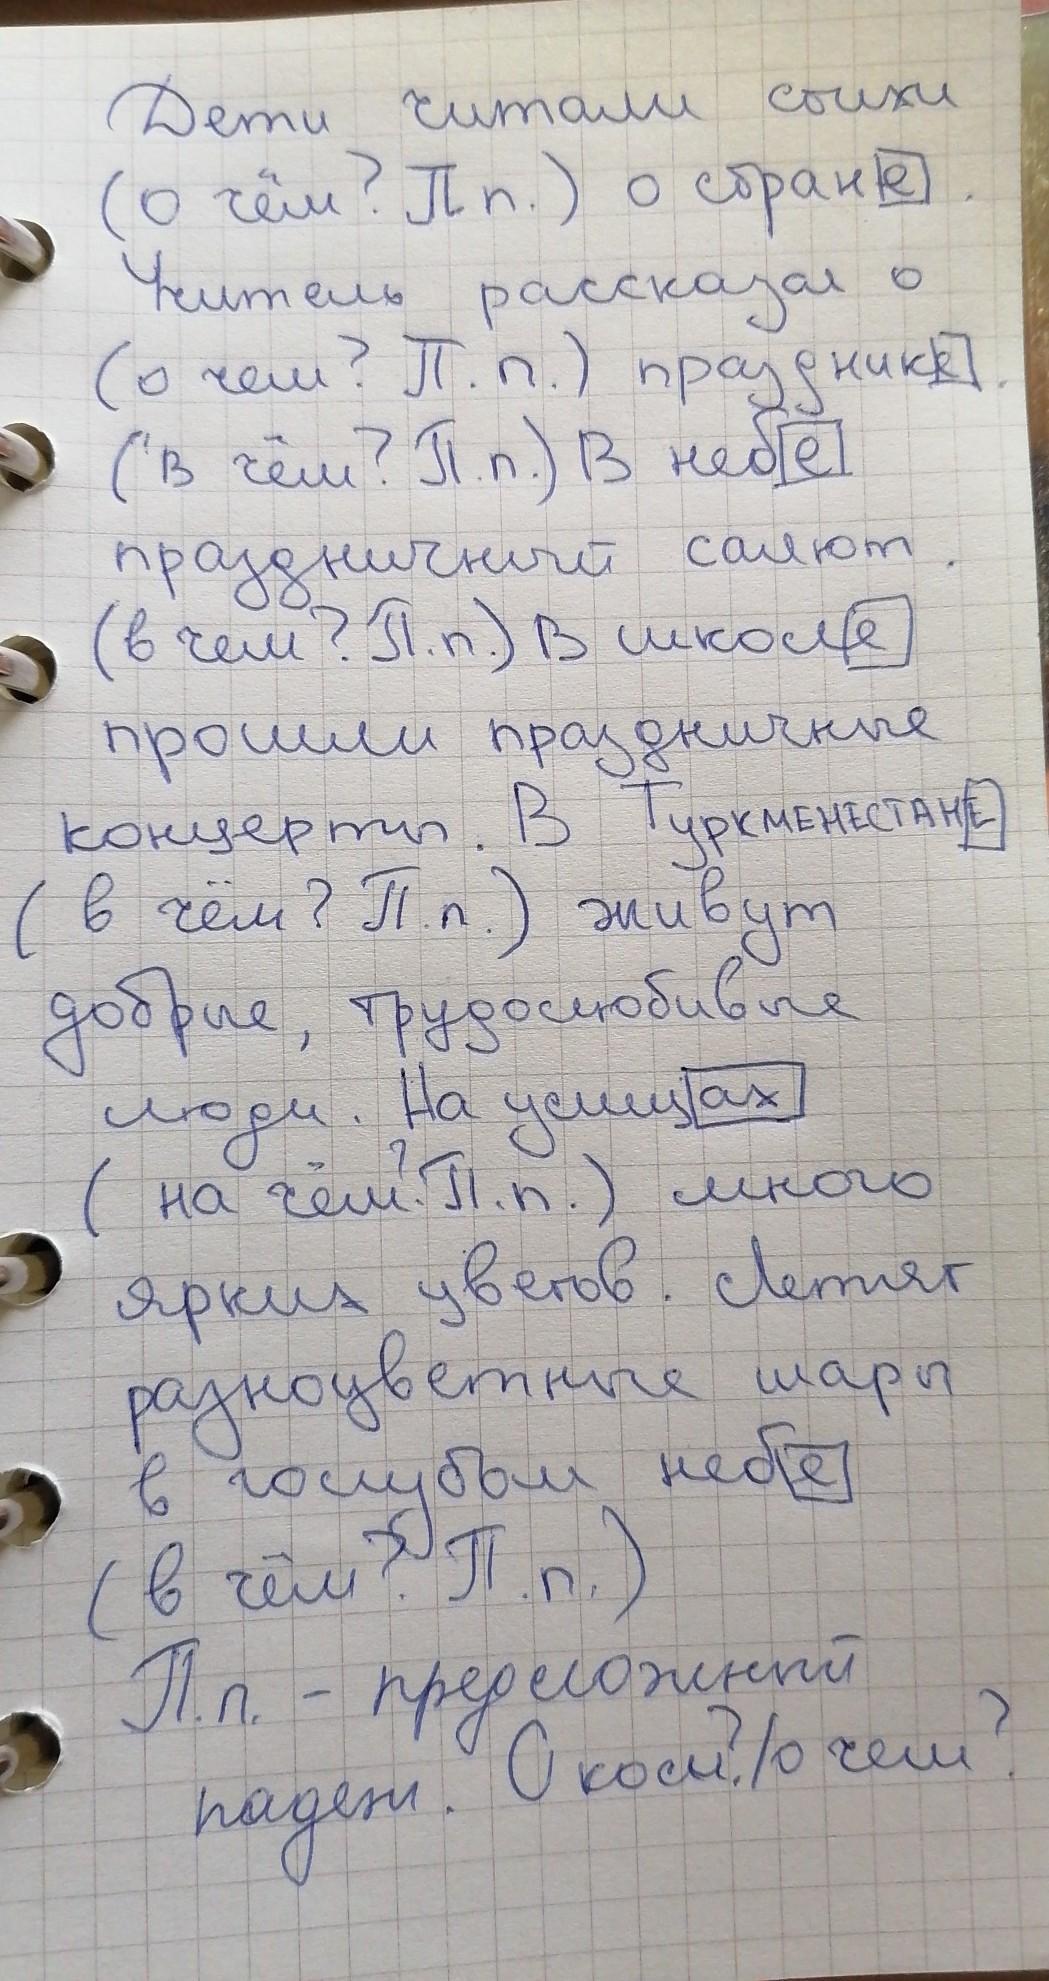 Дети читали стихи
(о чём? П п.) о стране.
Учитель рассказал о
(о чем? П. п.) празднике.
(в чём? П.п.) В небе
праздничный салют.
(в чем? П.п.) В школе
прошли праздничные
концерты. В ТУРКМЕНЕСТАНЕ
(в чём? П.п.) живут
добрые, трудолюбивые
люди. На улицах
(на чём? П.п.) много
ярких цветов. Летят
разноцветные шары
в голубом небе
(в чём? П.п.)
П.п. - предложный
падеж. О ком?/о чем?